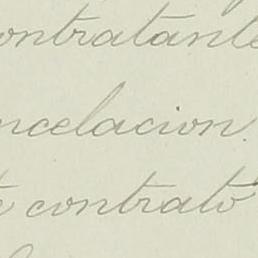 contratante
ncelacion
e contrato